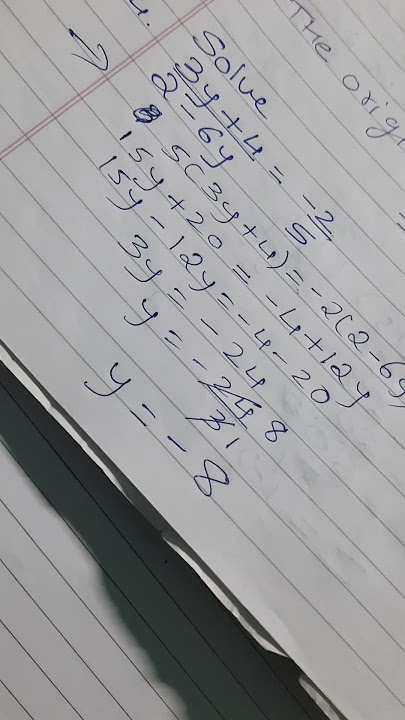 4.
The orig
Solve
3y + 4 / 2 - 6y = -2 / 5
5(3y+4) = -2(2-6y)
15y + 20 = -4 + 12y
15y - 12y = -4 - 20
3y = -24
y = -24 8 / 3 1
y = -8